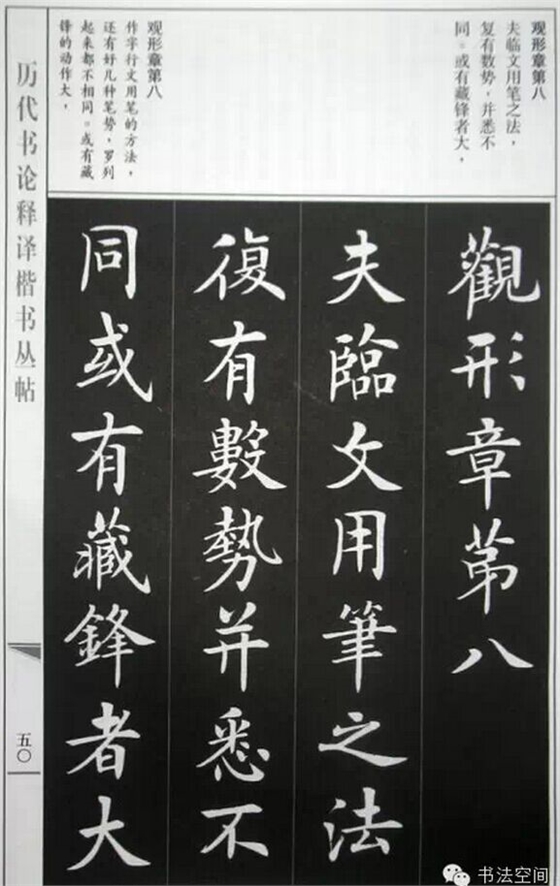 观形章第八
夫临文用笔之法，
复有数势，并悉不
同。或有藏锋者大，
观形章第八
作字行文用笔的方法，
还有好几种笔势，罗列
起来都不相同。或有藏
锋的动作大，
觀形章第八
夫臨文用筆之法
復有數勢并悉不
同或有藏鋒者大
历代书论释译楷书丛帖
五〇
书法空间